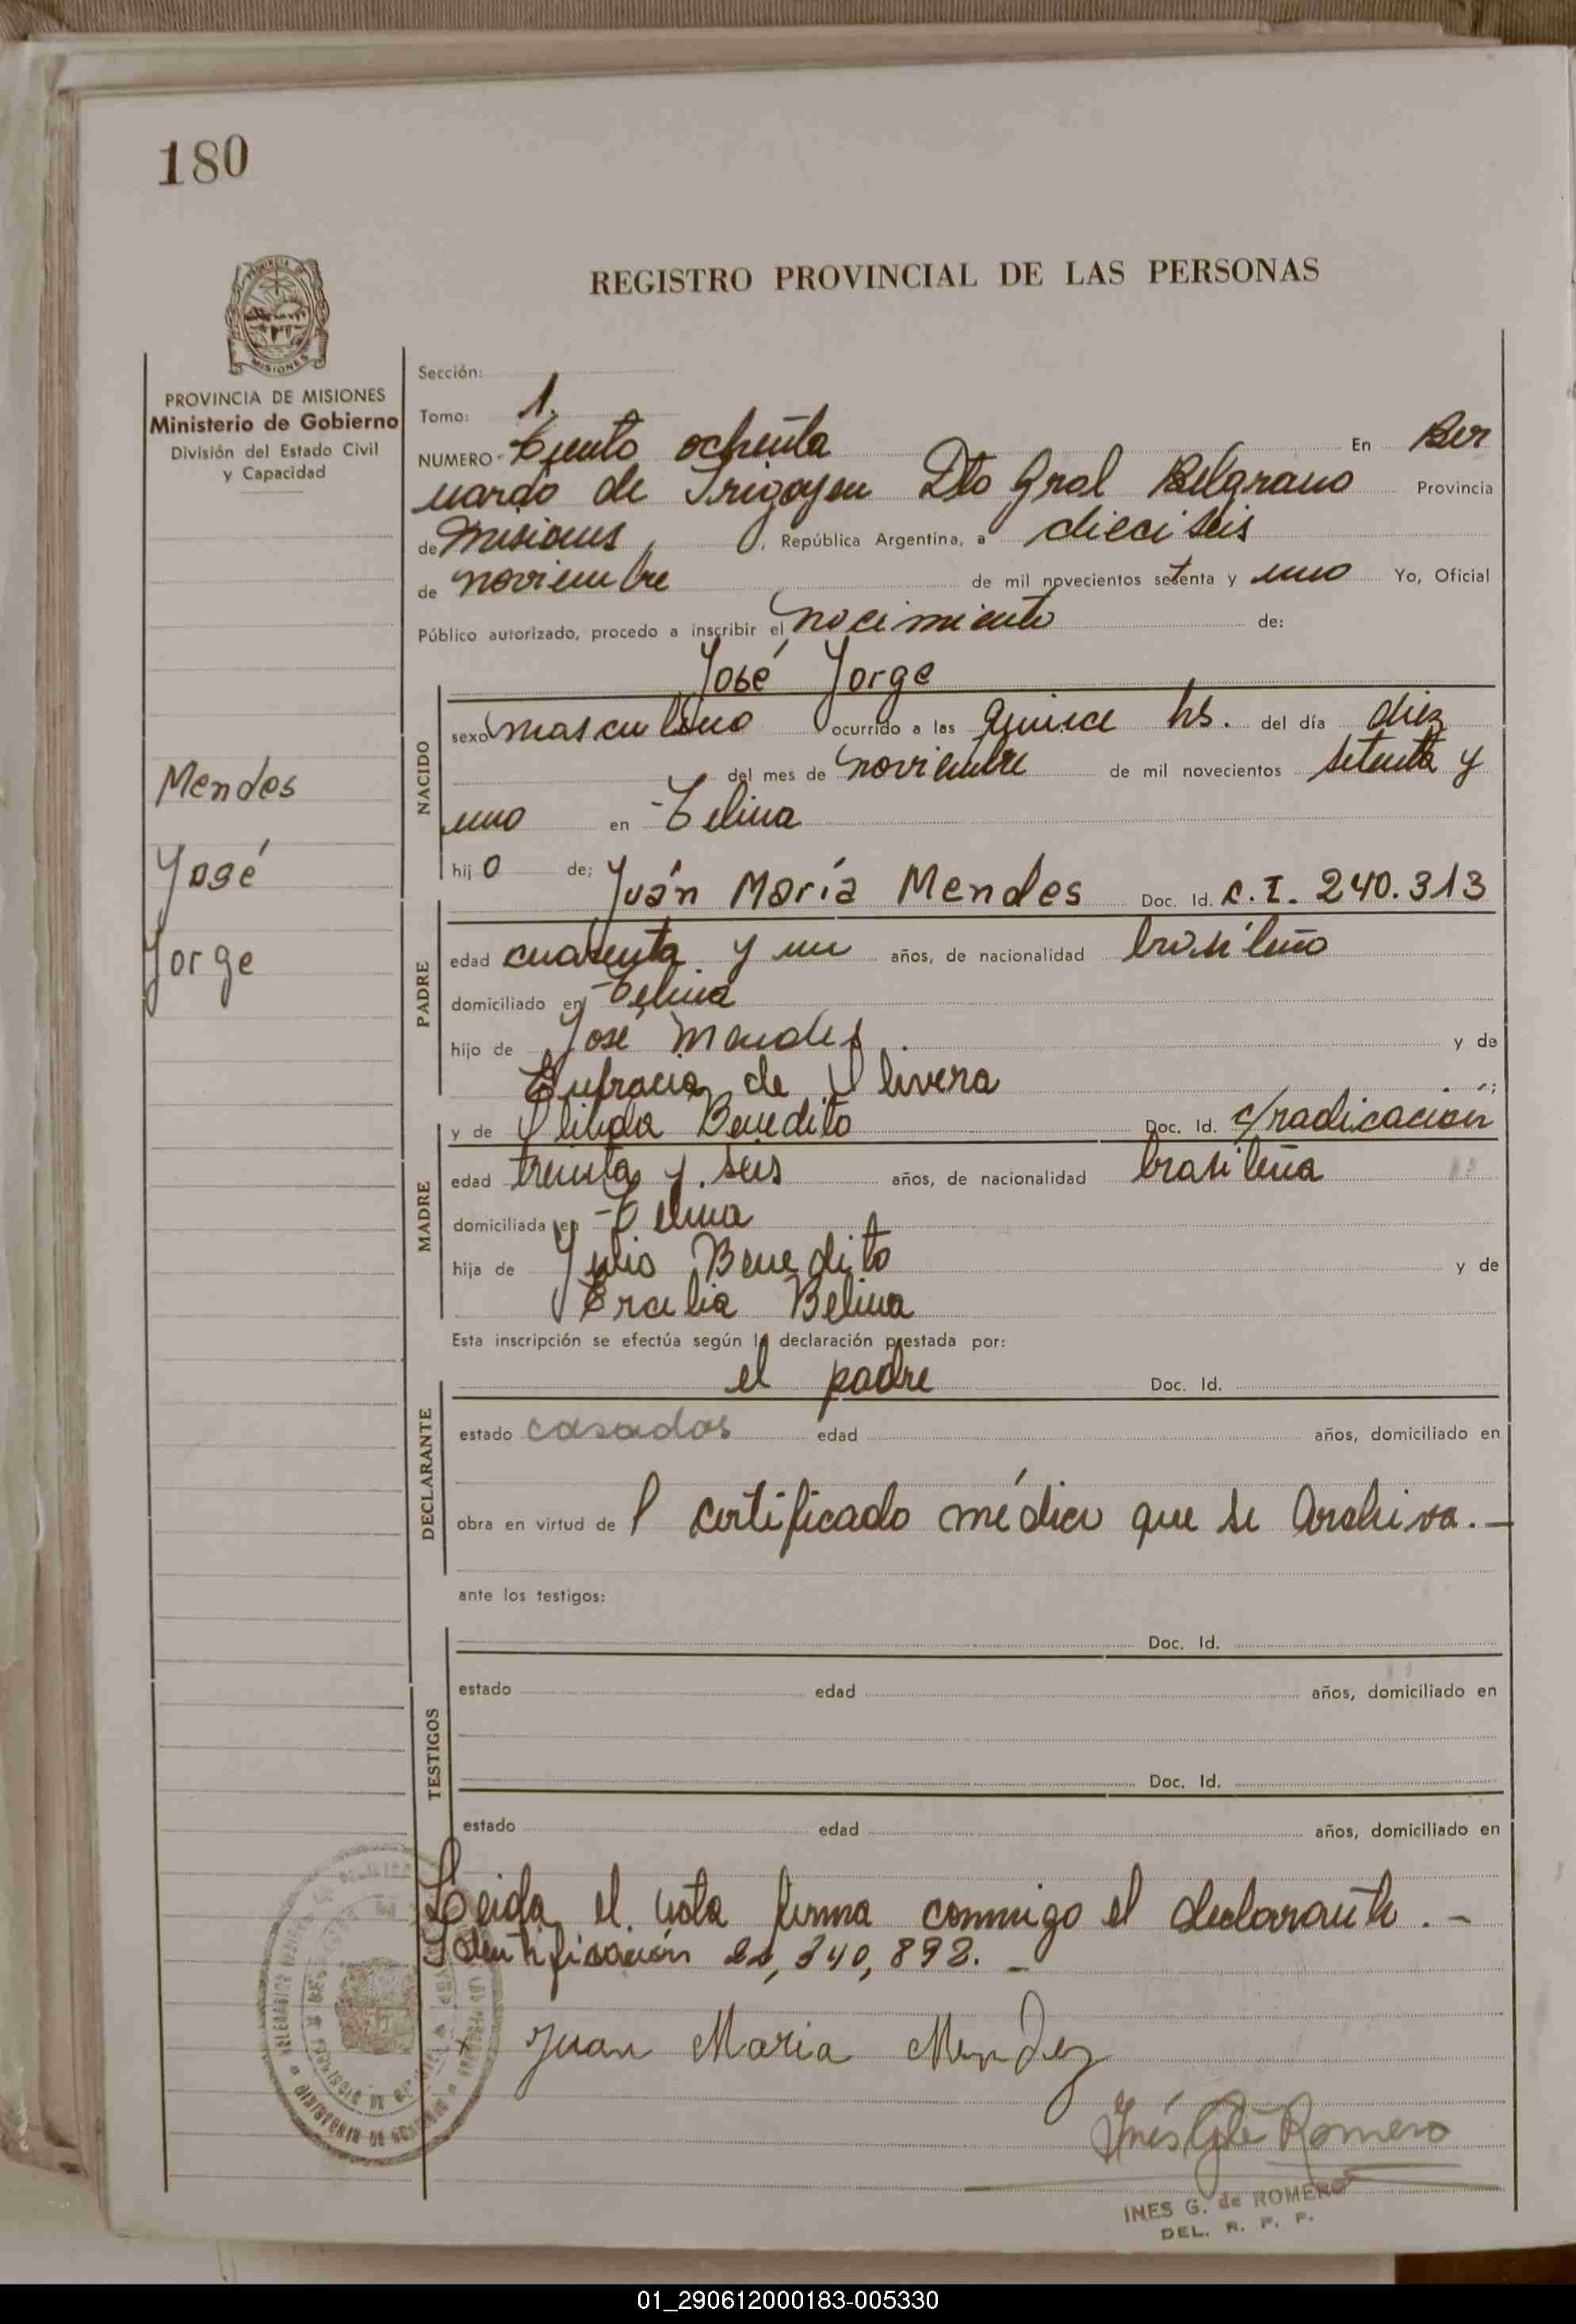 180
REGISTRO PROVINCIAL DE LAS PERSONAS
MISIONES
PROVINCIA DE MISIONES
Ministerio de Gobierno
División del Estado Civil
y Capacidad
Mendes
José
Jorge
Sección:
Tomo: 1.
NUMERO Ciento ochenta En Ber
nardo de Irigoyen Dto Gral Belgrano Provincia
de Misiones, República Argentina, a dieciseis
de noviembre de mil novecientos setenta y uno Yo, Oficial
Público autorizado, procedo a inscribir el nacimiento de:
José Jorge
NACIDO
sexo masculino ocurrido a las quince hs. del día diez
del mes de noviembre de mil novecientos setenta y
uno en
hijo de; Juán María Mendes Doc. Id. C.I. 240.313
PADRE
edad cuarenta y un años, de nacionalidad brasileño
domiciliado en
hijo de José Mendes y de
Eufracia de Olivera
y de Benedito Doc. Id. c/radicacion
MADRE
edad treinta y seis años, de nacionalidad brasileña
domiciliada en
hija de Julio Benedito y de
Belina
Esta inscripción se efectúa según la declaración prestada por:
el padre Doc. Id.
DECLARANTE
estado casados edad años, domiciliado en
obra en virtud del certificado médico que se archiva.-
ante los testigos:
Doc. Id.
TESTIGOS
estado edad años, domiciliado en
Doc. Id.
estado edad años, domiciliado en
Leida el acta firma conmigo el declarante.-
Identificación 22,340,892.-
x Juan Maria Mendez
Inés G de Romero
INES G. de ROMERO
DEL. R. P. P.
01_290612000183-005330